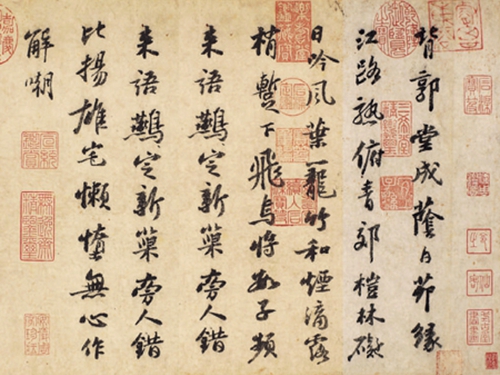 背郭堂成蔭白茆緣
江路熟俯青郊榿林礙
日吟風葉籠竹和煙滴露
梢蹔下飛烏將數子頻
来語鷰定新巢旁人錯
来語鷰定新巢旁人錯
比揚雄宅懶惰無心作
解嘲